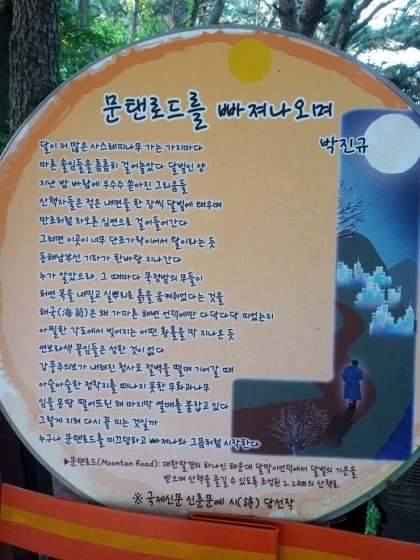 문탠로드를 빠져나오며
박진규
달이 저 많은 사스레피나무 가는 가지마다
마른 솔잎들을 촘촘히 걸어놓았다 달빛인 양
지난 밤 바람에 우수수 쏟아진 그리움들
산책자들은 젖은 내면을 한 장씩 달빛에 태우며
만조처럼 차오른 심연으로 걸어들어간다
그러면 이곳이 너무 단조가락이어서 탈이라는 듯
동해남부선 기차가 한바탕 지나간다
누가 알았으랴, 그 때마다 묵정밭의 무들이
허연 목을 내밀고 실뿌리로 흙을 움켜쥐었다는 것을
해국(海菊)은 왜 가파른 해변 언덕에만 다닥다닥 피었는지
아찔한 각도에서 빚어지는 어떤 황홀을 막 지나온 듯
연보라색 꽃잎들은 성한 것이 없다
강풍주의보가 내려진 청사포 절벽을 떨며 기어갈 때
아슬아슬한 정착지를 떠나지 못한 무화과나무
잎을 몽땅 떨어뜨린 채 마지막 열매를 붙잡고 있다
그렇게 지쳐 다시 꽃 피는 것일까
누구나 문탠로드를 미끄덩하고 빠져나와 그믐처럼 시작한다
▶문탠로드(Moontan Road): 대한팔경의 하나인 해운대 달맞이언덕에서 달빛의 기운을
받으며 산책을 즐길 수 있도록 조성된 2.2km의 산책로.
※ 국제신문 신춘문예 시(詩) 당선작